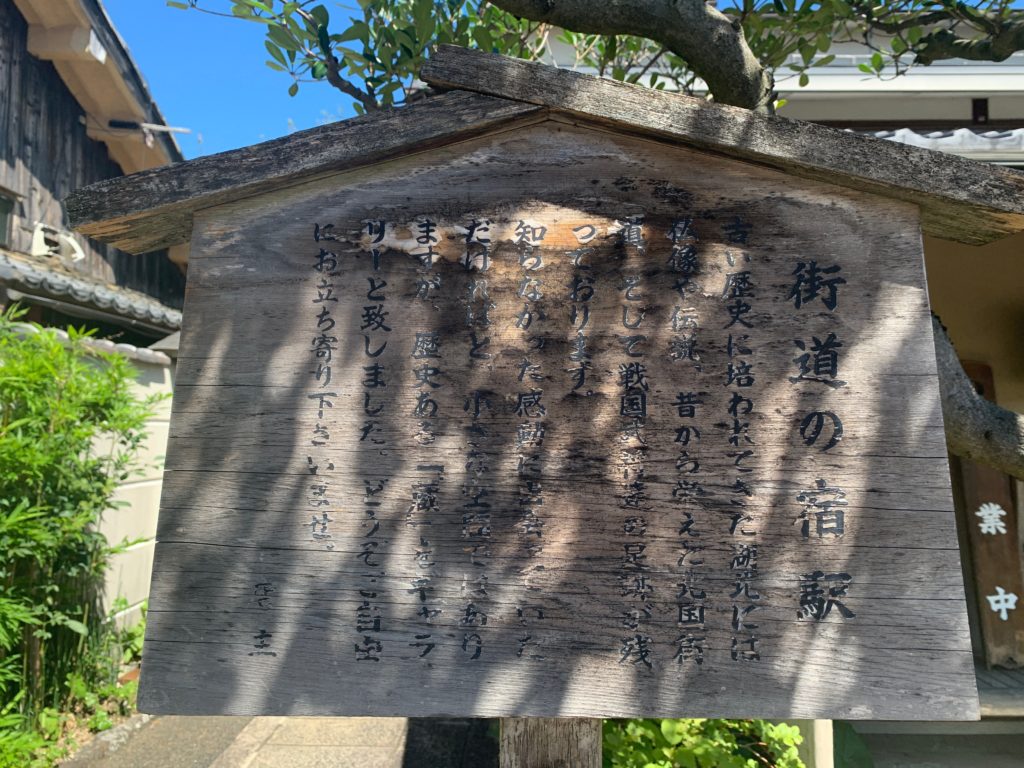 街道の宿駅
古い歴史に培われてきた湖北には
仏像や伝説、昔から栄えた北国街
道、そして戦国武将達の足跡が残
っております。
知らなかった感動に出会っていた
だければと、小さな土蔵ではあり
ますが、歴史ある「蔵」をギャラ
リーと致しました。どうぞご自由
にお立ち寄り下さいませ。
主
業中